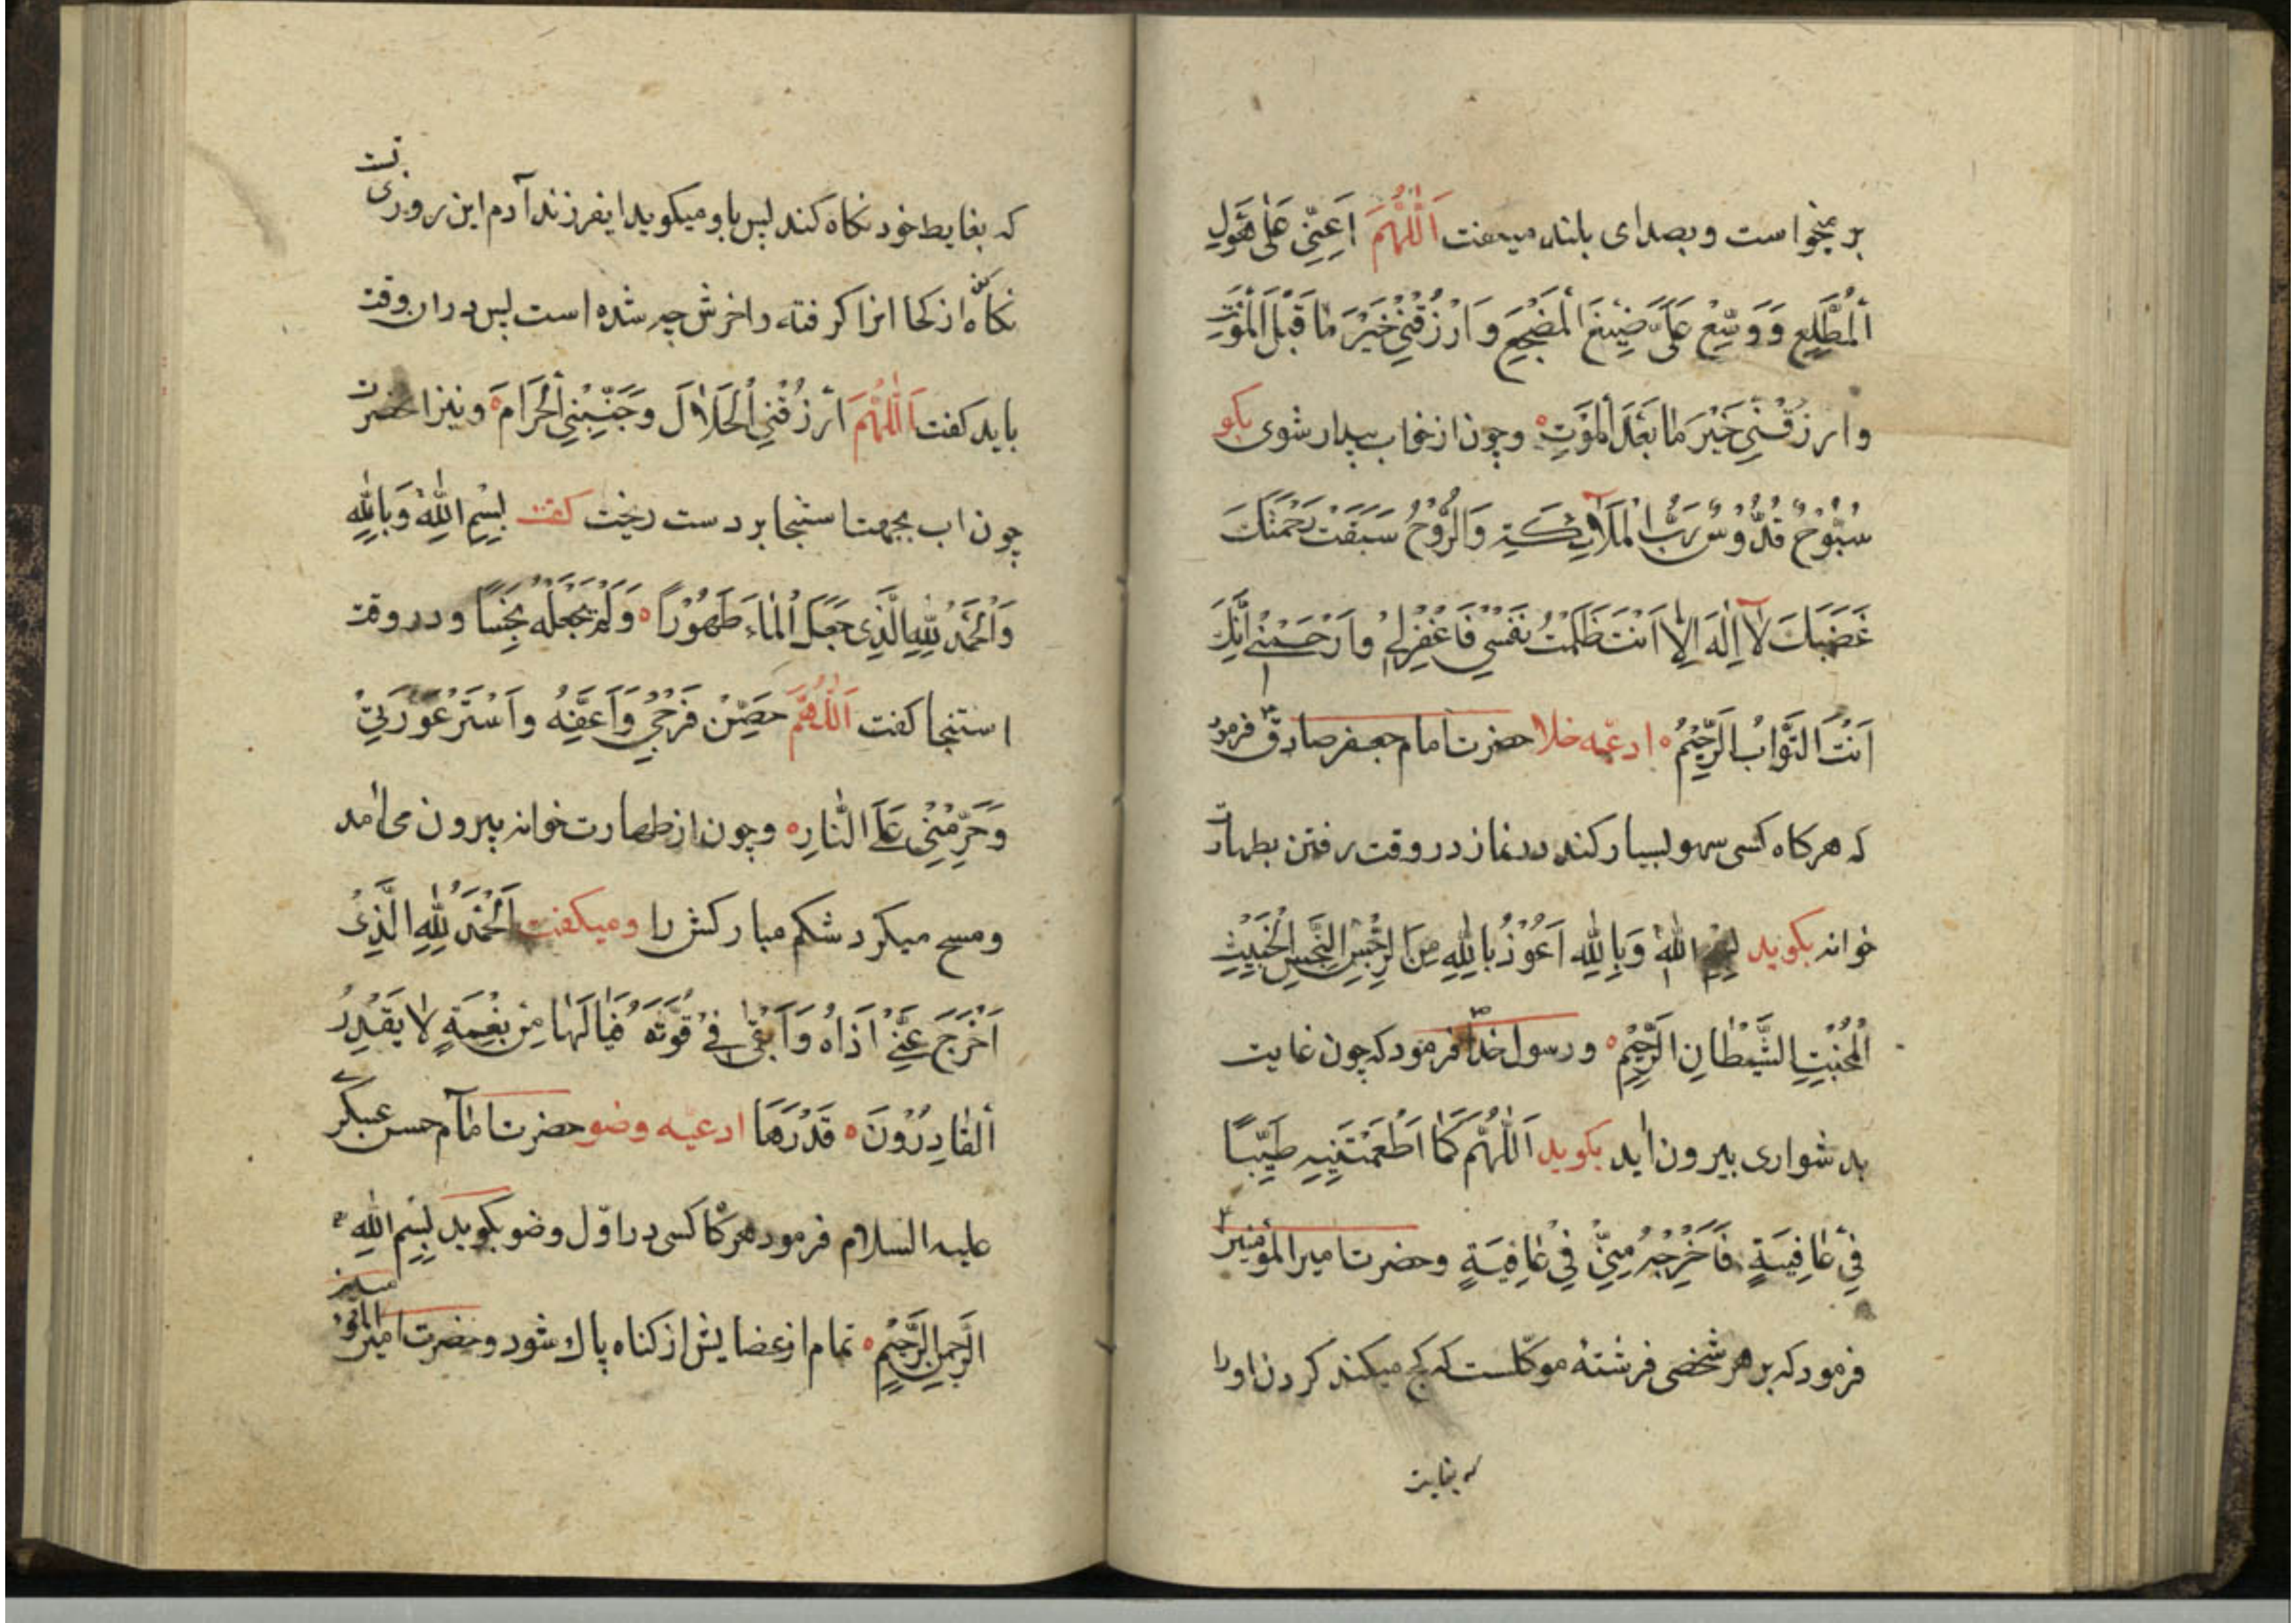 بر میخواست و بصدای بلند میکفت اَللّٰهُمَّ اَعِنِّی عَلٰی هَوْلِ
اَلْمُطَّلَعِ وَ وَسِّعْ عَلَیَّ ضِیْقَ الْمَضْجَعِ وَ ارْزُقْنِی خَیْرَ مٰا قَبْلَ الْمَوْتِ
وارزقْنِی خَیْرَ مٰا بَعْدَ الْمَوْتِ ه وچون از خواب بیدار شوی بکو
سُبُّوْحٌ قُدُّوْسٌ رَبُّ الْمَلآئِكَةِ وَالرُّوْحُ سَبَقَتْ رَحْمَتُكَ
غَضَبَكَ لآ اِلٰهَ اِلّا اَنْتَ ظَلَمْتُ نَفْسِی فَاغْفِرْلِی وارْحَمْنِی اِنَّكَ
اَنْتَ التَّوَّابُ الرَّحِیْمُ ه ادعیه خلا حضرت امام جعفر صادق ع فرمود
که هرکاه کسی سهو بسیار کند در نماز در وقت رفتن بطهارت
خوانه بکوید بِسْمِ اللّٰهِ وَ بِاللّٰهِ اَعُوْذُ بِاللّٰهِ مِنَ الرِّجْسِ النِّجْسِ الْخَبِیْثِ
اَلْمُخْبِثِ الشَّیْطٰانِ الرَّجِیْمِ ه و رسول خدا ص فرمود که چون غایت
بدشواری بیرون اید بکوید اَللّٰهُمَّ كَمٰا اَطْعَمْتَنِیهِ طَیِّبًا
فِیْ عٰافِیَةٍ فَاَخْرِجْهُ مِنِّیْ فِیْ عٰافِیَةٍ وحضرت امیرالمؤمنین ع
فرمود که بر هر شخصی فرشتهٔ موکلست که کج میکند کردن اورا
که بغایت
که بغایط خود نکاه کند پس باو میکوید ایفرزند آدم این روزی تست
نکاه کن از کجا انرا کرفته و اخرش چه شده است پس دران وقت
باید کفت اَللّٰهُمَّ ارْزُقْنِی الْحَلاٰلَ وَ جَنِّبْنِی الْحَرَامَ ه و نیز انحضرت
چون اب بجهت استنجا بر دست ریخت کفت بِسْمِ اللّٰهِ وَ بِاللّٰهِ
وَالْحَمْدُ لِلّٰهِ الَّذِی جَعَلَ الْمٰاءَ طَهُوْرًا ه وَلَمْ یَجْعَلْهُ نَجِسًا و در وقت
استنجا کفت اَللّٰهُمَّ حَصِّنْ فَرْجِیْ وَ اَعِفَّهُ وَ اسْتُرْ عَوْرَتِیْ
وَ حَرِّمْنِی عَلَی النّٰارِ ه وچون از طهارت خوانه بیرون می امد
ومسح میکرد شکم مبارکش را ومیکفت اَلْحَمْدُ لِلّٰهِ الَّذِیْ
اَخْرَجَ عَنِّیْ اَذَاهُ وَ اَبْقٰی فِیْ قُوَّتَهُ فَیٰا لَهٰا مِنْ نِعْمَةٍ لاٰ یَقْدِرُ
اَلْقٰادِرُوْنَ ه قَدْرَهَا ادعیه وضو حضرت امام حسن عسکری
علیه السلام فرمود هرکاه کسی در اوّل وضو بکوید بِسْمِ اللّٰهِ
الرَّحْمٰنِ الرَّحِیْمِ ه تمام از عضایش از کناه پاك شود وحضرت امیرالمؤمنین